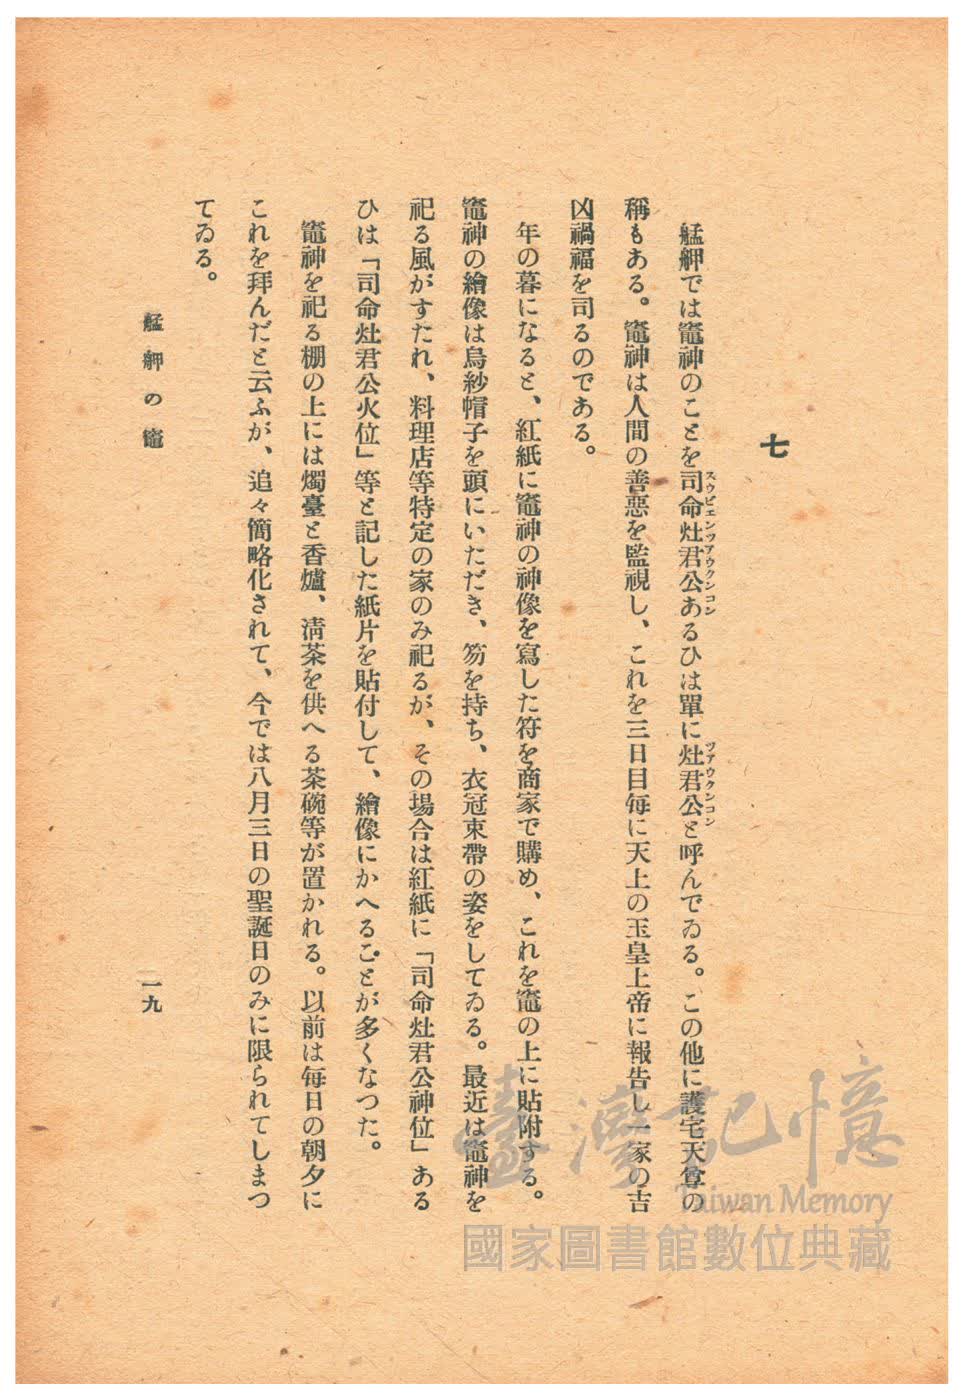 七
艋舺では竈神のことを司命灶君公あるひは單に灶君公と呼んでゐる。この他に護宅天尊の
スウビエンツアウクンコン
ツアウクンコン
稱もある。竈神は人間の善惡を監視し、これを三日目每に天上の玉皇上帝に報告し一家の吉
凶禍福を司るのである。
年の暮になると、紅紙に竈神の神像を寫した符を商家で購め、これを竈の上に貼附する。
竈神の繪像は烏紗帽子を頭にいただき、笏を持ち、衣冠束帶の姿をしてゐる。最近は竈神を
祀る風がすたれ、料理店等特定の家のみ祀るが、その場合は紅紙に「司命灶君公神位」ある
ひは「司命灶君公火位」等と記した紙片を貼付して、繪像にかへることが多くなつた。
竈神を祀る棚の上には燭臺と香爐、淸茶を供へる茶碗等が置かれる。以前は每日の朝夕に
これを拜んだと云ふが、追々簡略化されて、今では八月三日の聖誕日のみに限られてしまつ
てゐる。
艋舺の竈
一九
臺灣記憶
Taiwan Memory
國家圖書館數位典藏